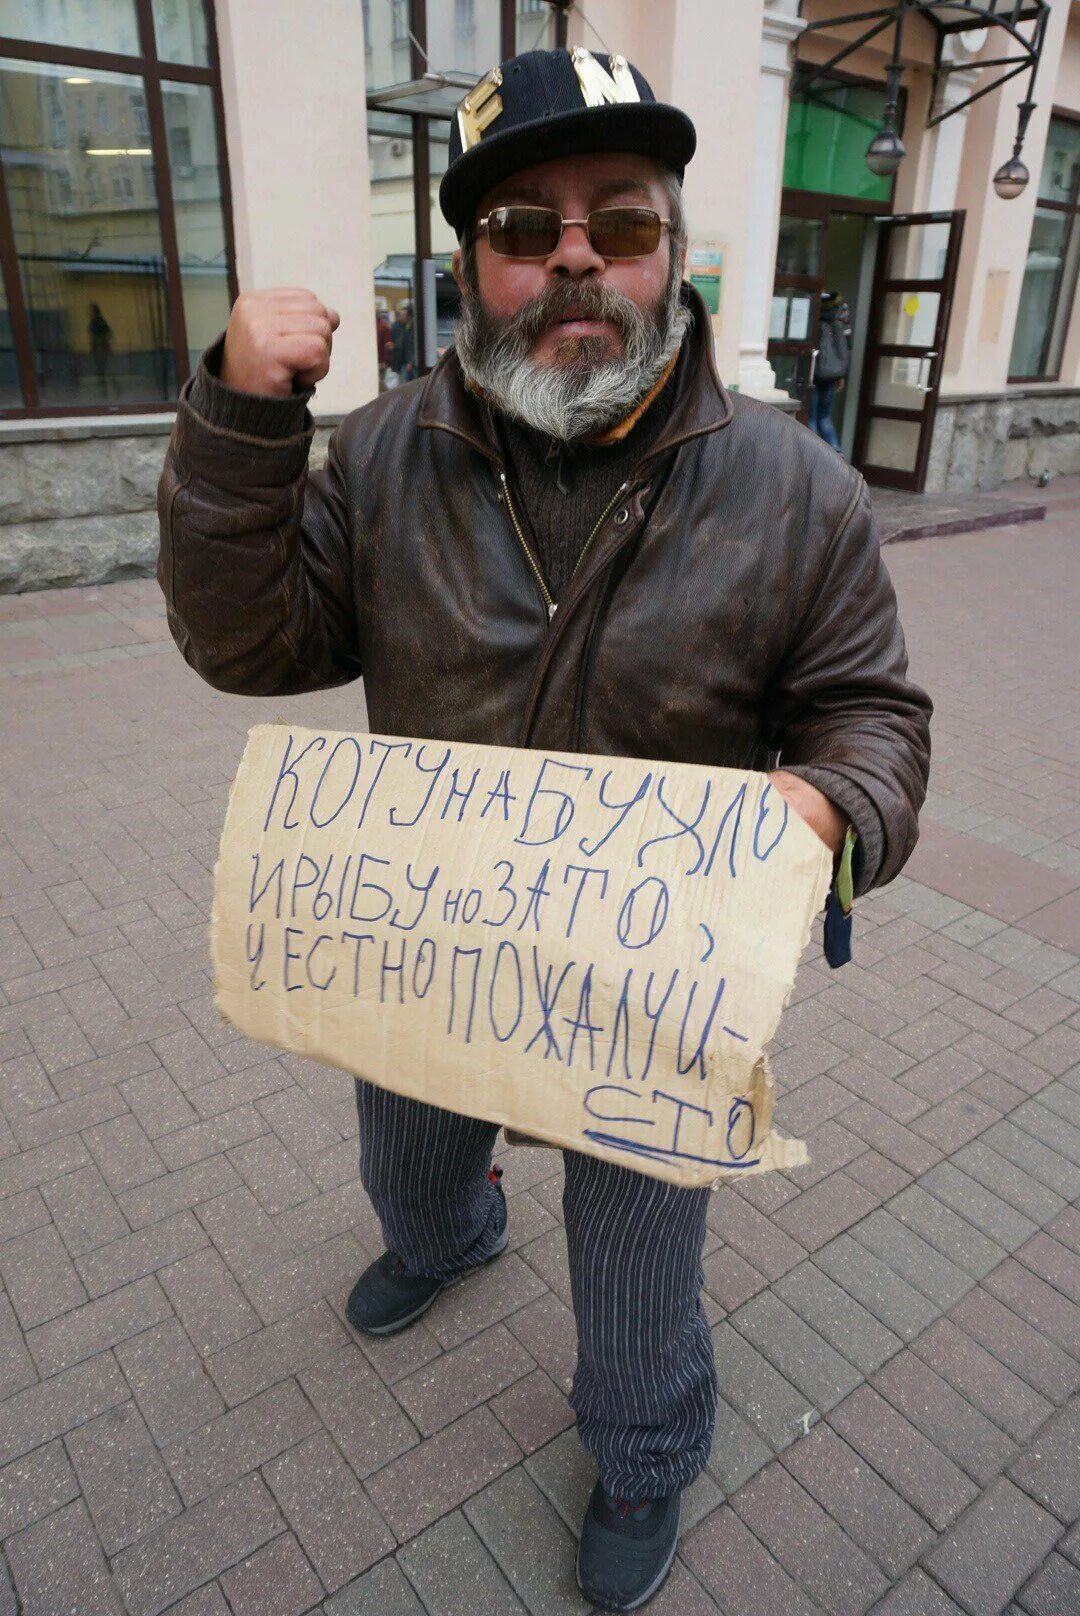 F N
КОТУ НА БУХЛО
И РЫБУ НО ЗАТО,
ЧЕСТНО ПОЖАЛУЙ-
СТО